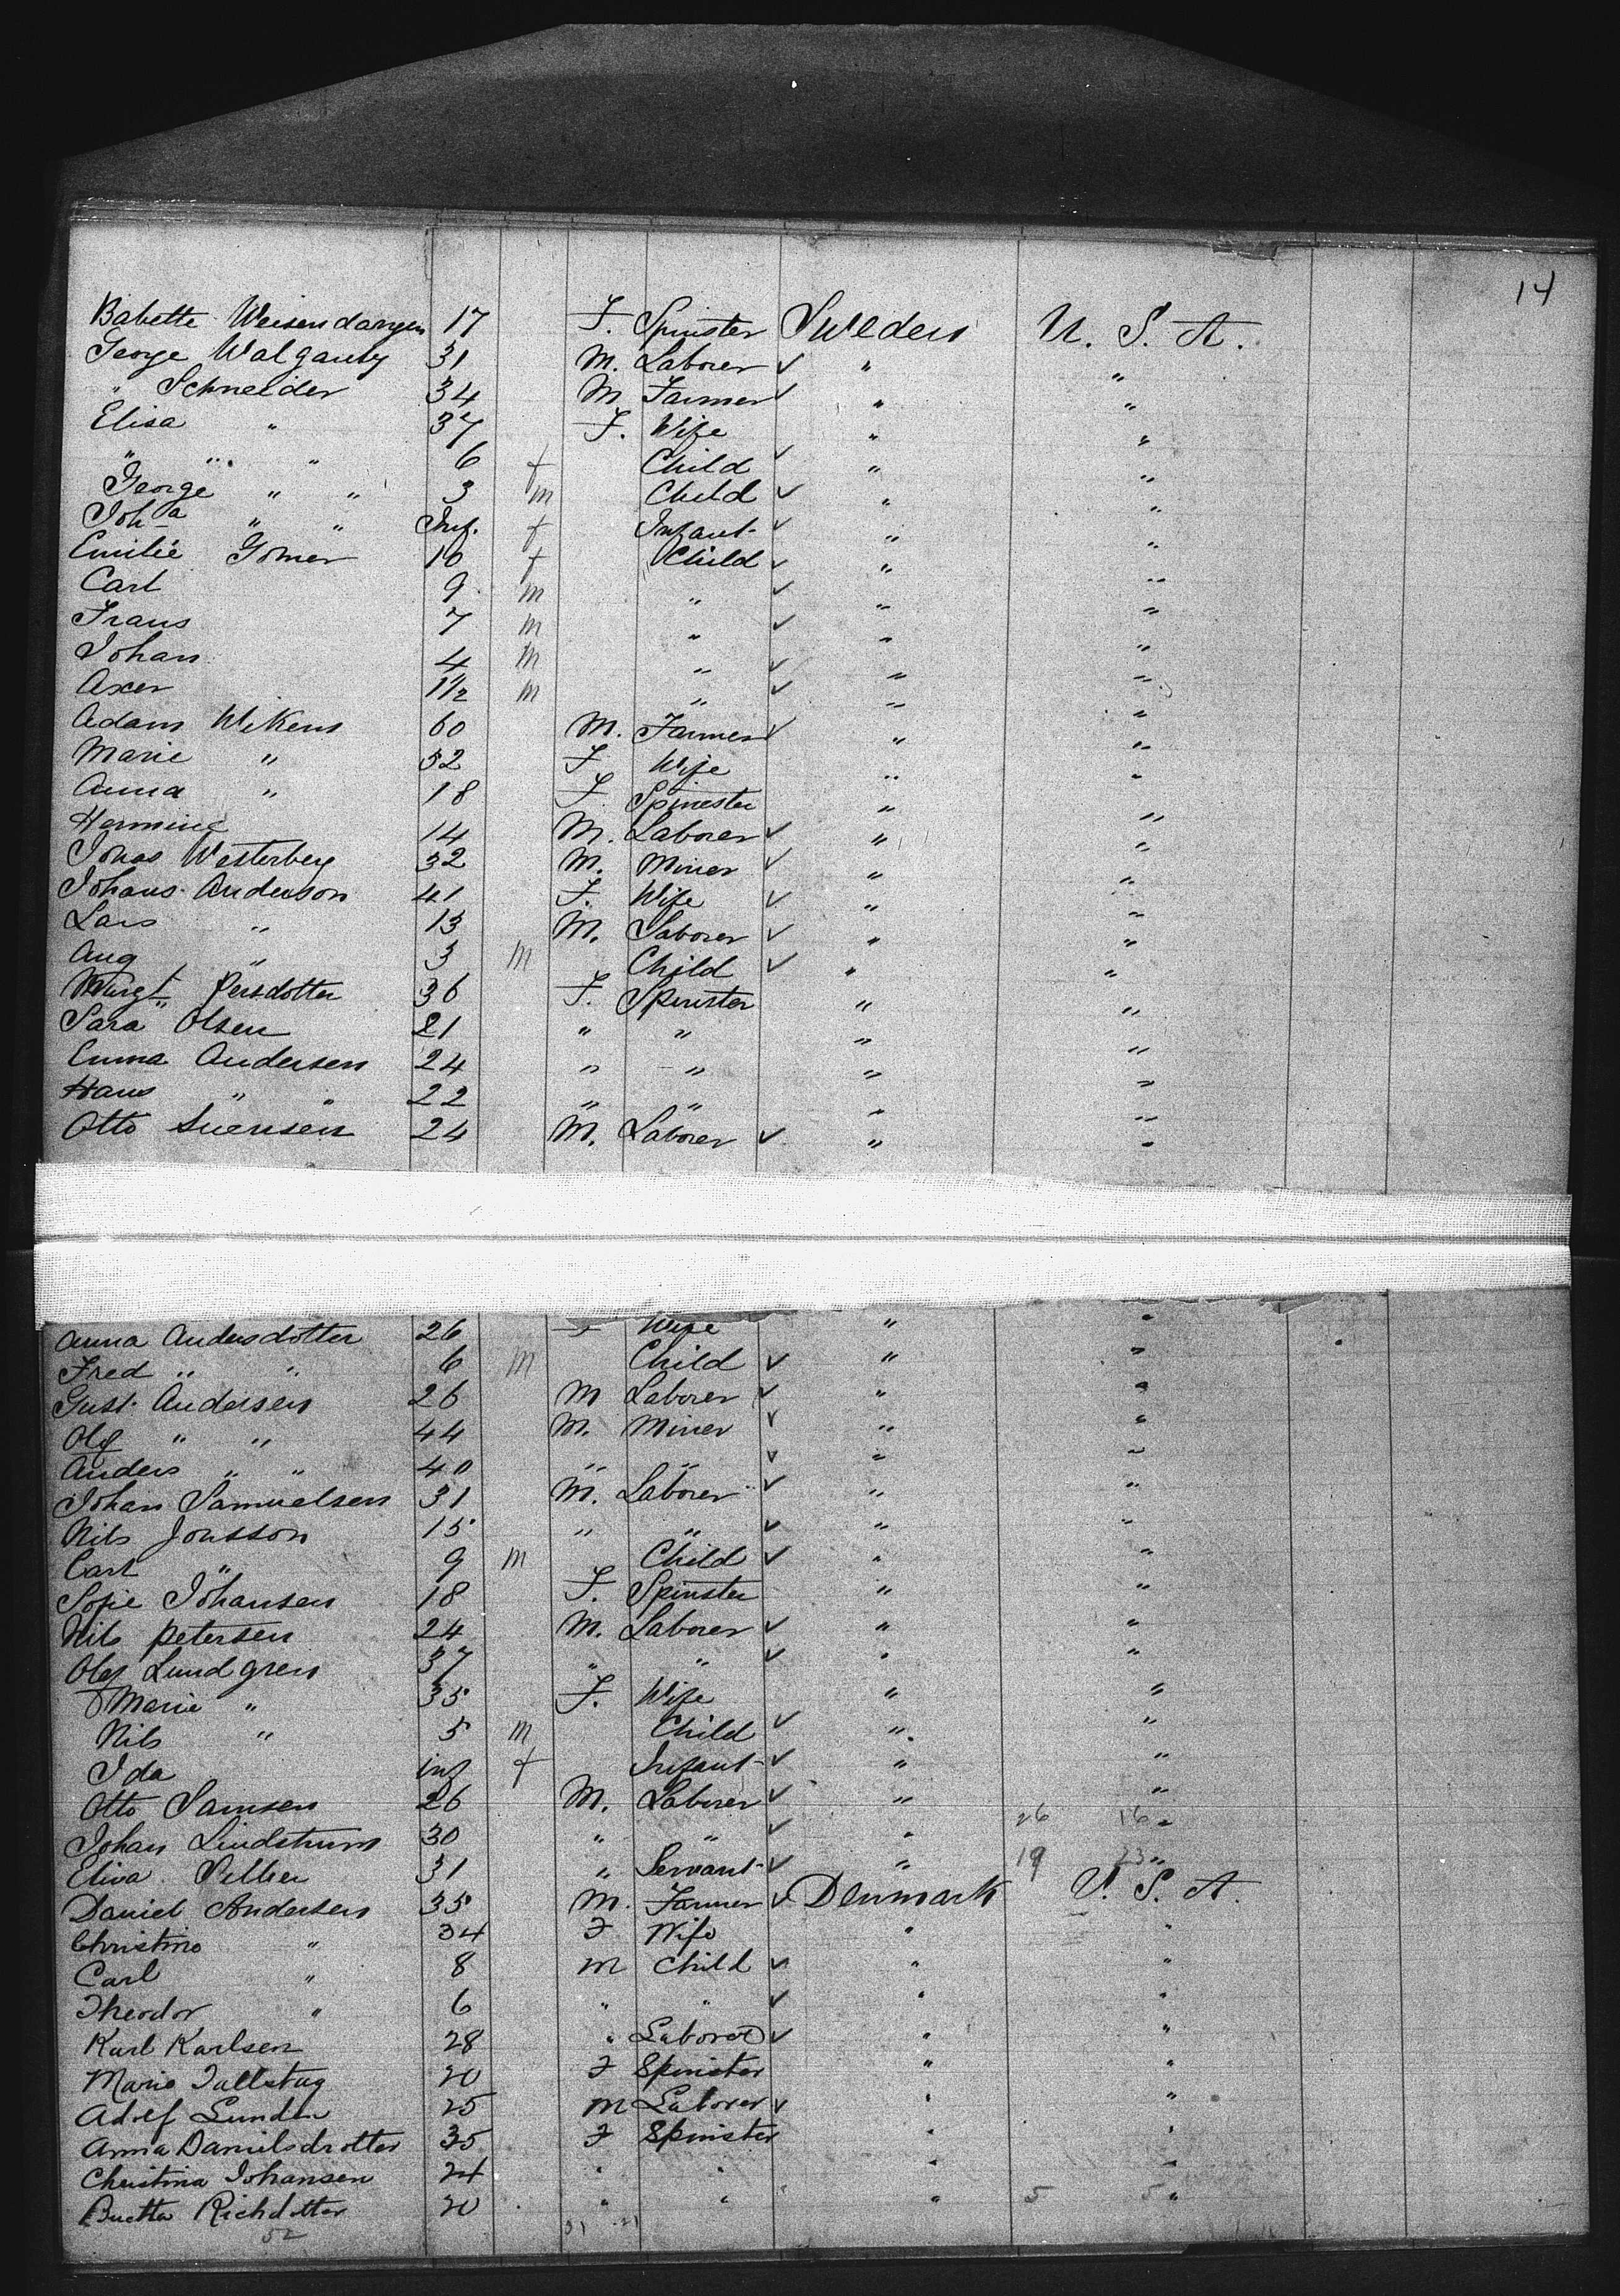 14
Babette Weisendangen 17 F. Spinster Sweden U. S. A.
George Walgauty 31 M. Laborer ✓ " "
" Schneider 34 M Farmer ✓ " "
Elisa " 37 F. Wife " "
" " " 6 f Child ✓ " "
George " " 3 m Child ✓ " "
Joh-a " " Inf. f Infant ✓ " "
Emilie Gomer 10 f Child ✓ " "
Carl 9 m " ✓ " "
Frans 7 m " ✓ " "
Johan 4 m " ✓ " "
Axer 1 1/2 m " ✓ " "
Adam Wikens 60 M. Farmer ✓ " "
Marie " 52 F Wife " "
Anna " 18 F. Spinester " "
Hermine 14 M. Laborer ✓ " "
Jonas Westerberg 32 M. Miner ✓ " "
Johans Anderson 41 F. Wife ✓ " "
Lars " 13 M. Laborer ✓ " "
Aug " 3 m Child ✓ " "
Margt Persdotter 36 F. Spinster " "
Sara Olsen 21 " " " "
Emma Andersen 24 " " " "
Hans " " 22 " " " "
Otto Svensen 24 M. Laborer ✓ " "
Anna Andersdotter 26 F Wife " "
Fred " " 6 m Child ✓ " "
Gust. Andersen 26 M Laborer ✓ " "
Olf " " 44 M. Miner ✓ " "
Anders " " 40 " " ✓ " "
Johan Samuelsen 31 M. Laborer ✓ " "
Nils Jonsson 15 " " ✓ " "
Carl " 9 m Child ✓ " "
Sofie Johansen 18 F. Spinster " "
Nils Petersen 24 M. Laborer ✓ " "
Olof Lundgren 37 " " ✓ " "
Marie " 35 F. Wife " "
Nils " 5 m Child ✓ " "
Ida inf f Infant ✓ " "
Otto Samsen 26 M. Laborer ✓ " "
Johan Lindstrum 30 " " ✓ " 26 16 "
Eliva 31 " Servant ✓ " 19 23 "
Daniel Andersen 35 M. Farmer ✓ Denmark U. S. A.
Christine " 34 F Wife " "
Carl " 8 m Child ✓ " "
Theodor " 6 " " ✓ " "
Karl Karlsen 28 " Laborer ✓ " "
Marie Tallstug 20 F Spinster " "
Adolf Lunden 25 M Laborer ✓ " "
Anna Danilsdrotter 35 F Spinster " "
Christina Johansen 24 " " " "
Richdotter 20 " " " 5 5 "
52 31 21